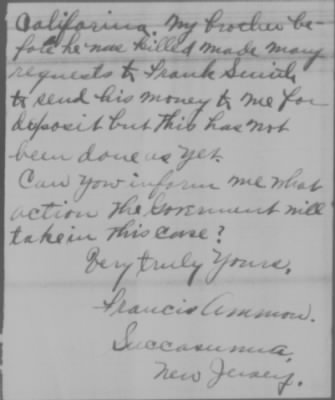 California. My brother be-
fore he was killed made many
requests to Frank Smith
to send his money to me for
deposit but this has not
been done as yet.
Can you inform me what
action the Goverment will
take in this case?
Very truly Yours,
Francis Ammon.
Succasunna,
New Jersey.